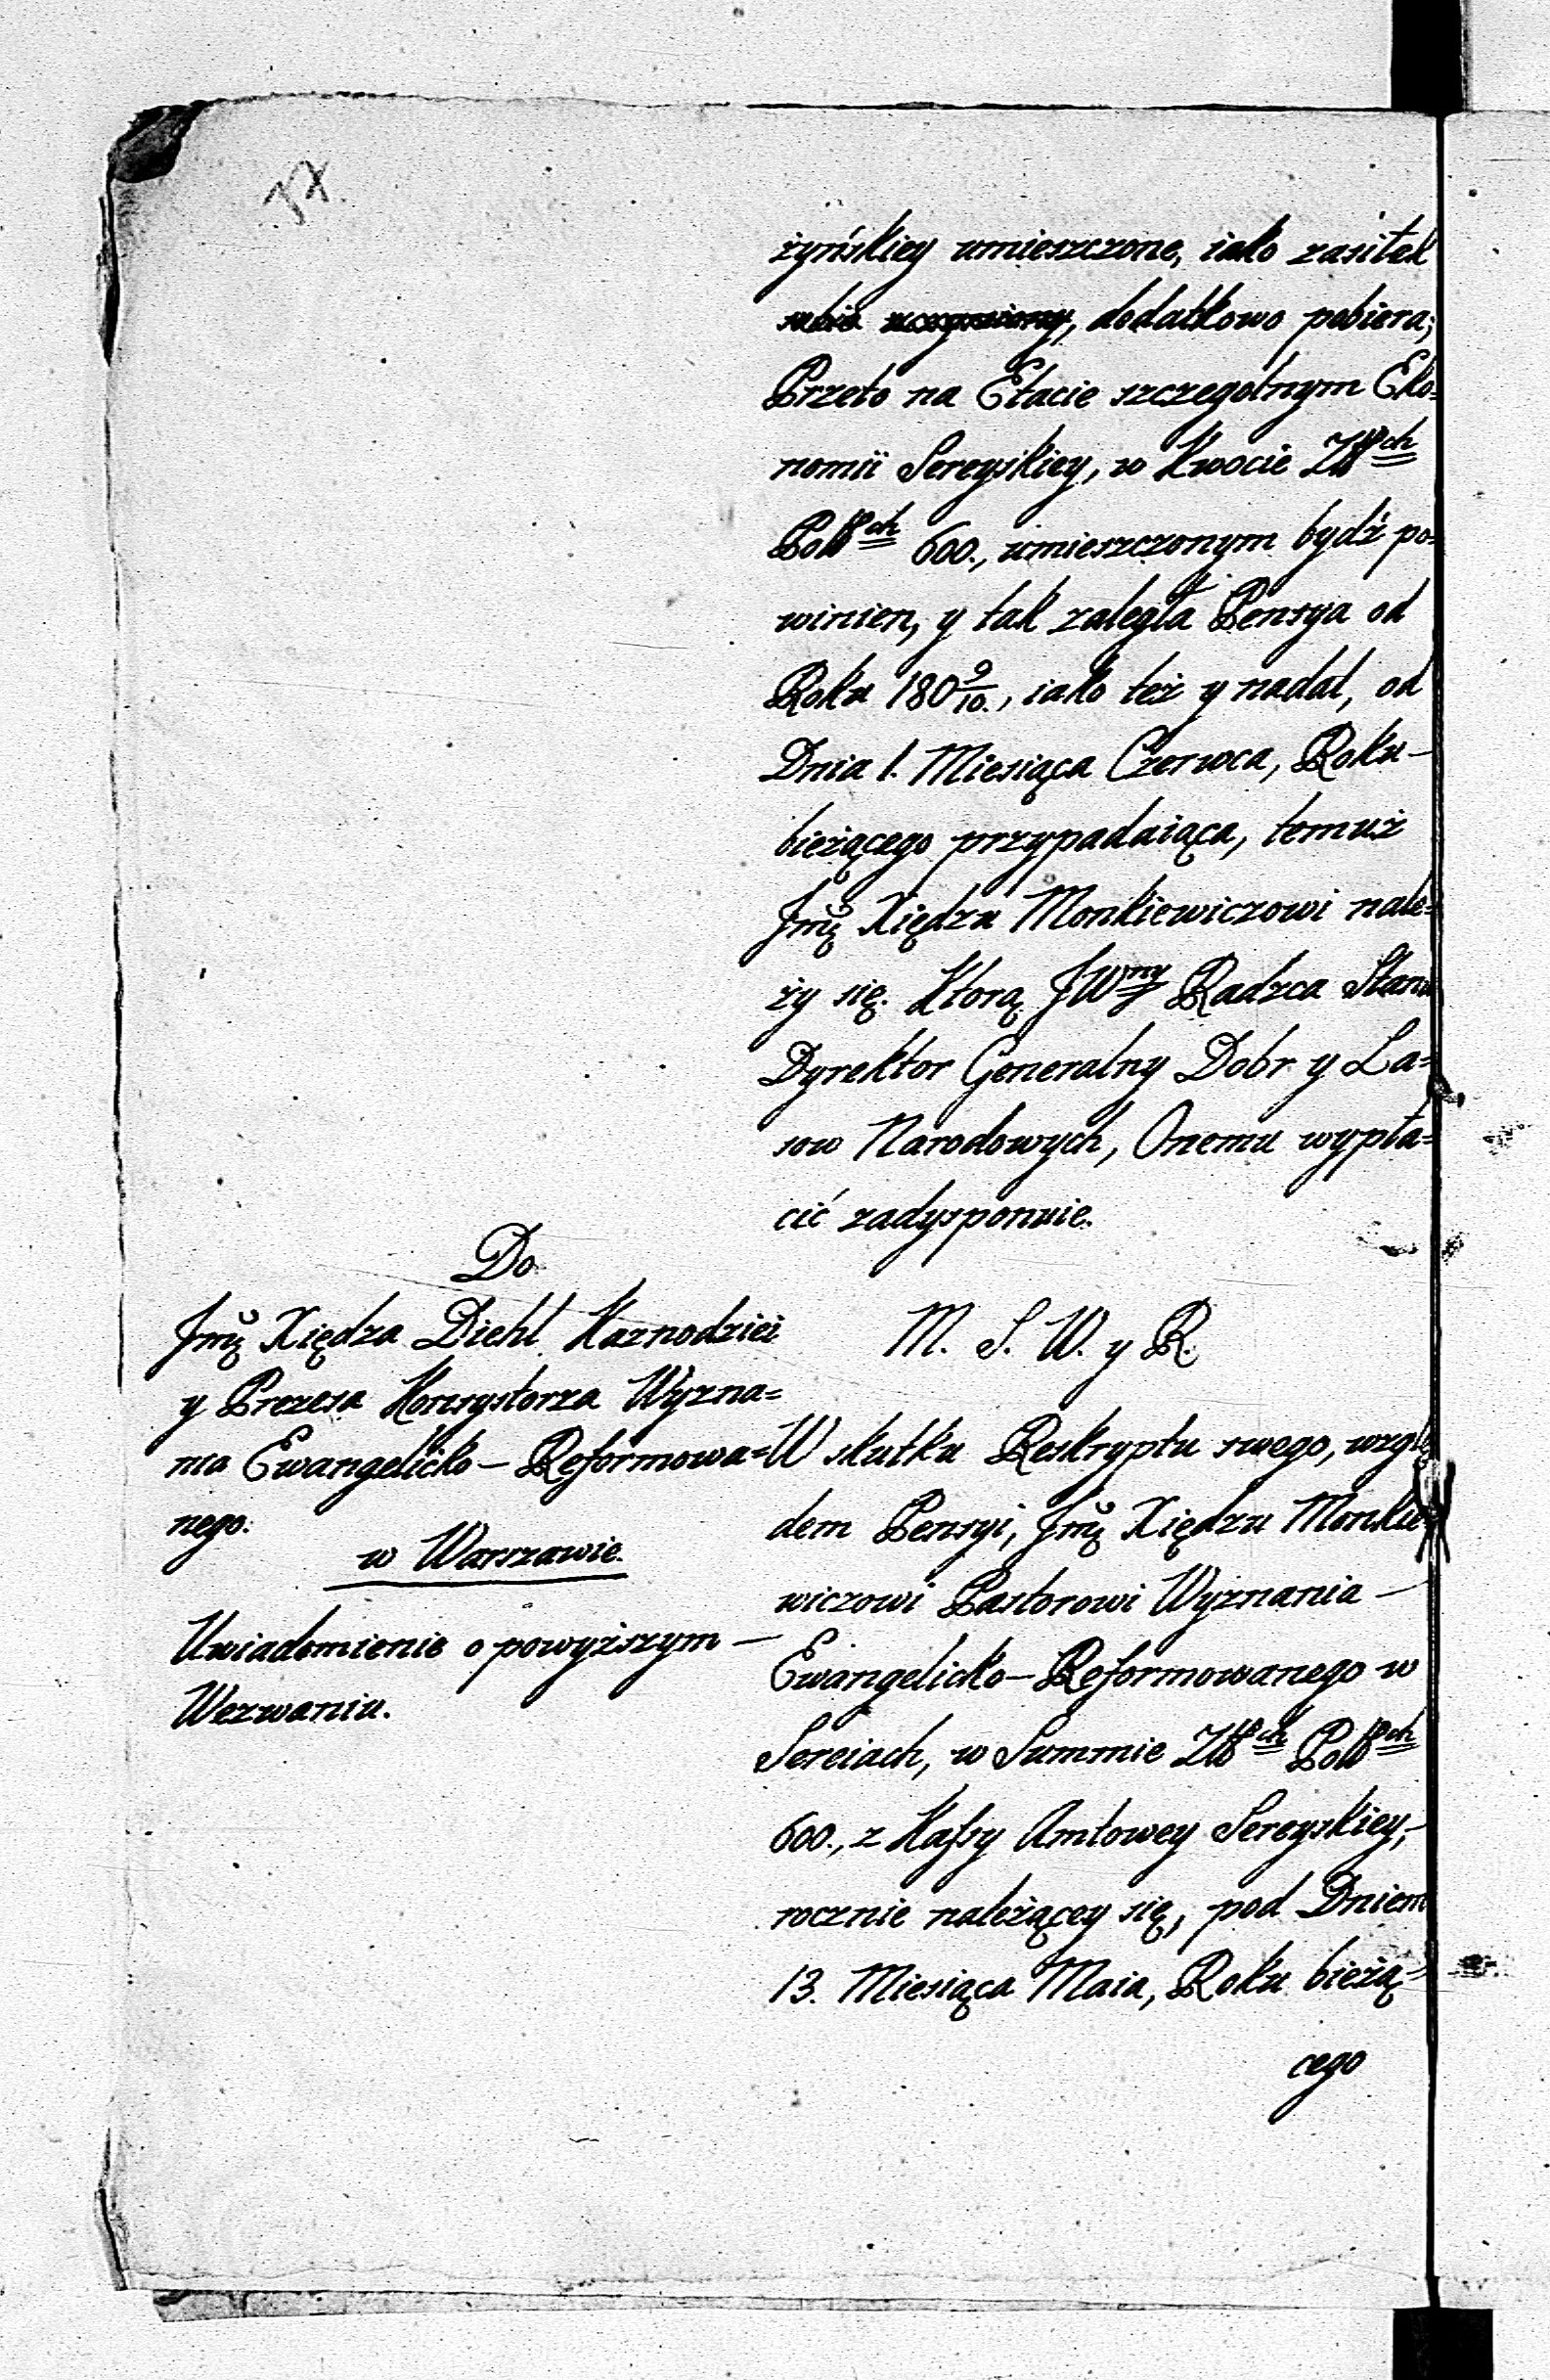 żyńskiey umieszczone, iako zasitek
sobie uczyniony, dodatkowo pobiera;
Przeto na Etacie szczegolnym Eko=
nomii Sereyskiey, w Kwocie Złłch
Pollch 600., umieszczonym bydź po=
winien, y tak zaległa Pensya od
Roku 180 9/10., iako też y nadal, od
Dnia 1. Miesiąca Czerwca, Roku —
bieżącego przypadaiąca, temuż
Jmę Xiędzu Monkiewiczowi nale=
ży się. Ktorą JWny Radzca Stanu
Dyrektor Generalny Dobr y La=
sow Narodowych, Onemu wypła=
cić zadysponuie.
Do
Jmę Xiędza Diehl Kaznodziei
y Prezesa Konsystorza Wyzna=
nia Ewangelicko — Reformowa=
nego.
w Warszawie.
Uwiadomienie o powyższym —
Wezwaniu.
M. S. W. y R.
W skutku Reskryptu swego, wzglę
dem Pensyi, Jmę Xiędzu Monkie=
wiczowi Pastorowi Wyznania —
Ewangelicko — Reformowanego w
Sereiach, w Summie Złłch Pollch
600., z Kassy Amtowey Sereyskiey, —
rocznie należącey się, pod Dniem
13. Miesiąca Maia, Roku bieżą=
cego